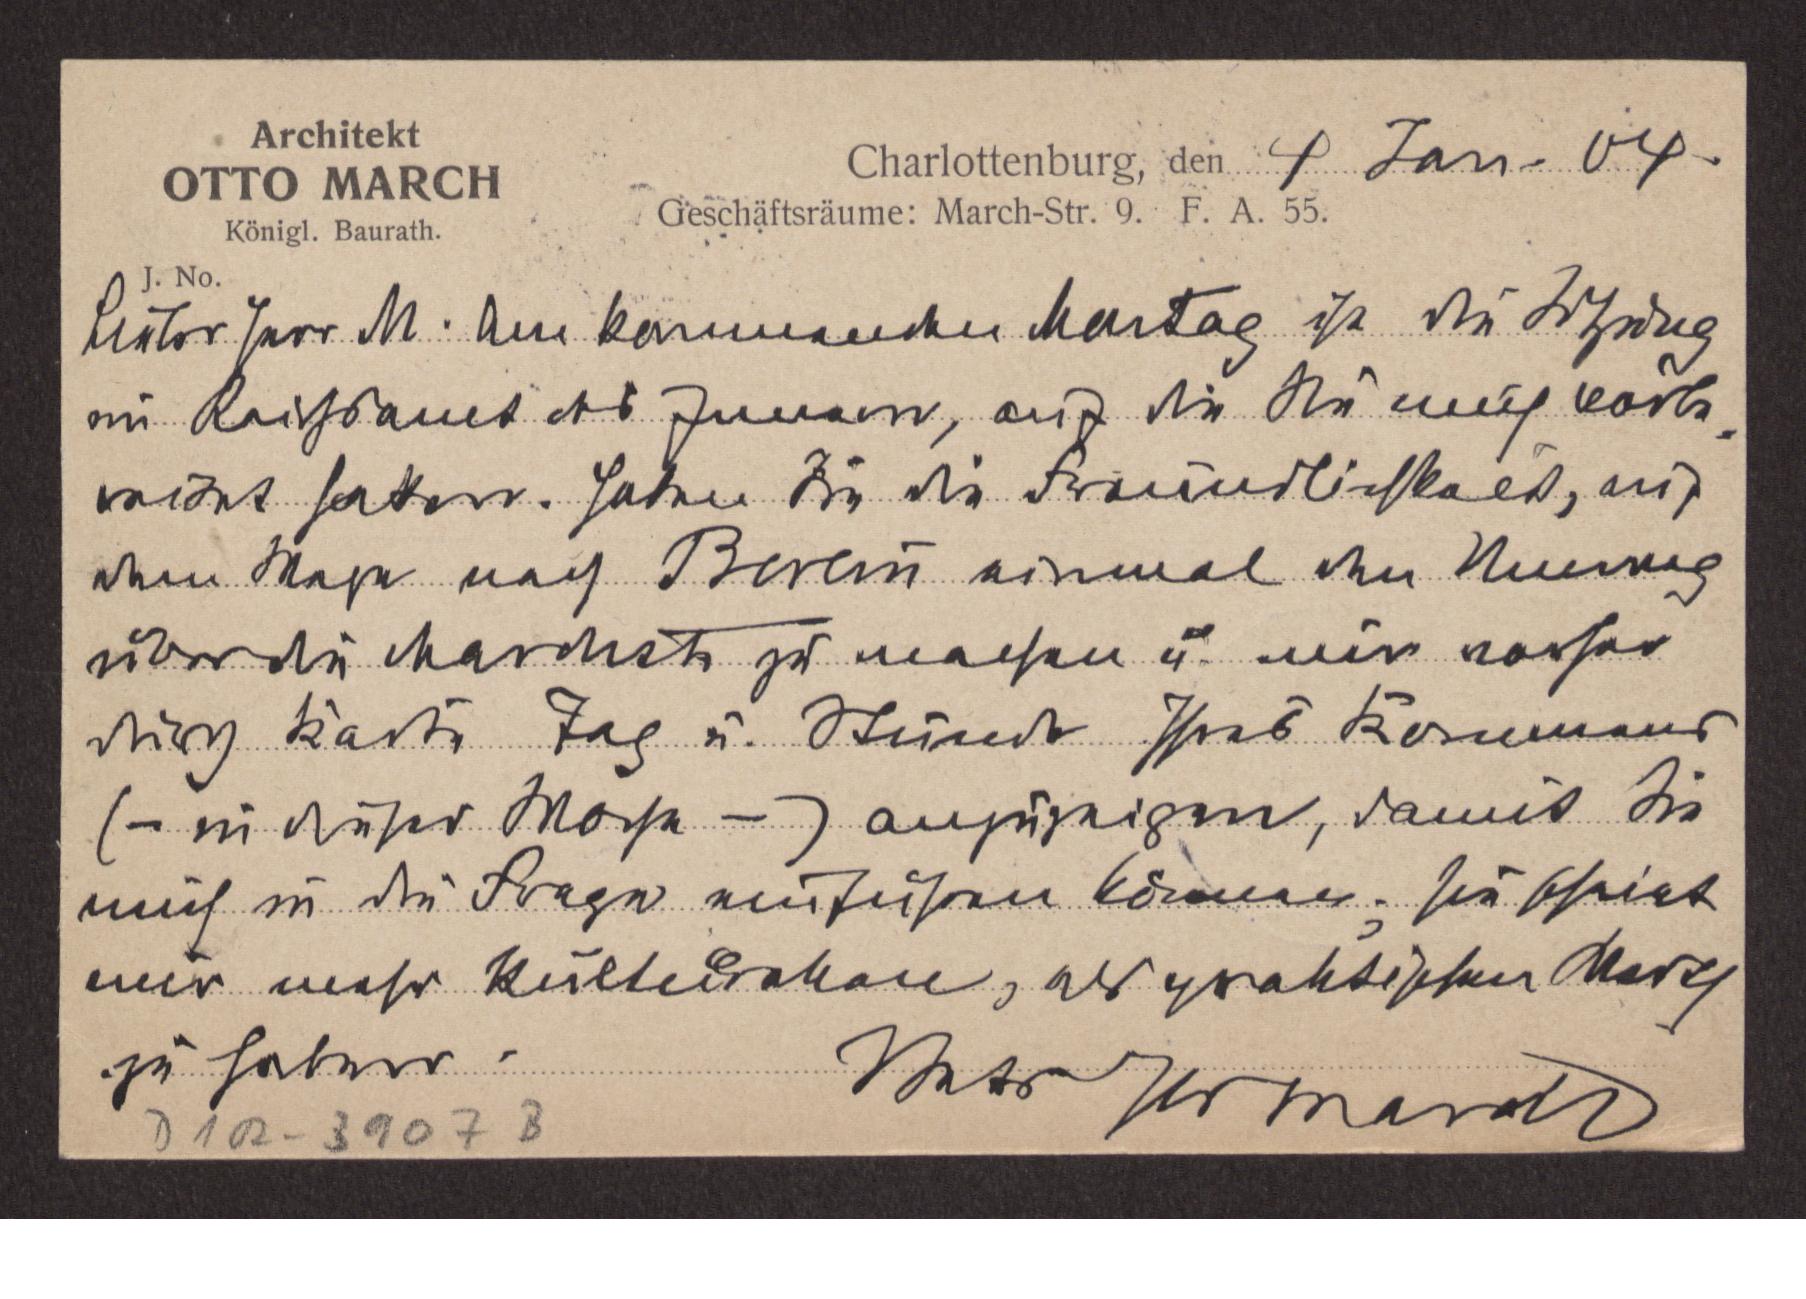 Architekt
OTTO MARCH
Königl. Baurath.
Charlottenburg, den 4 Jan. 04.
Geschäftsräume: March-Str. 9. F. A. 55.
J. No.
Lieber Herr M. Am kommenden Montag ist die Sitzung
im Reichsamt des Innern, auf die Sie mich vorbe-
reitet hatten. Haben Sie die Freundlichkeit, auf
dem Wege nach Berlin einmal den Umweg
über die Marchstr zu machen u. mir vorher
durch Karte Tag u. Stunde Ihres Kommens
(– in dieser Woche –) anzuzeigen, damit Sie
mich in die Frage einführen können; sie scheint
mir mehr kulturellen, als praktischen Werth
zu haben.
Stets Ihr March
D 102-3907 B